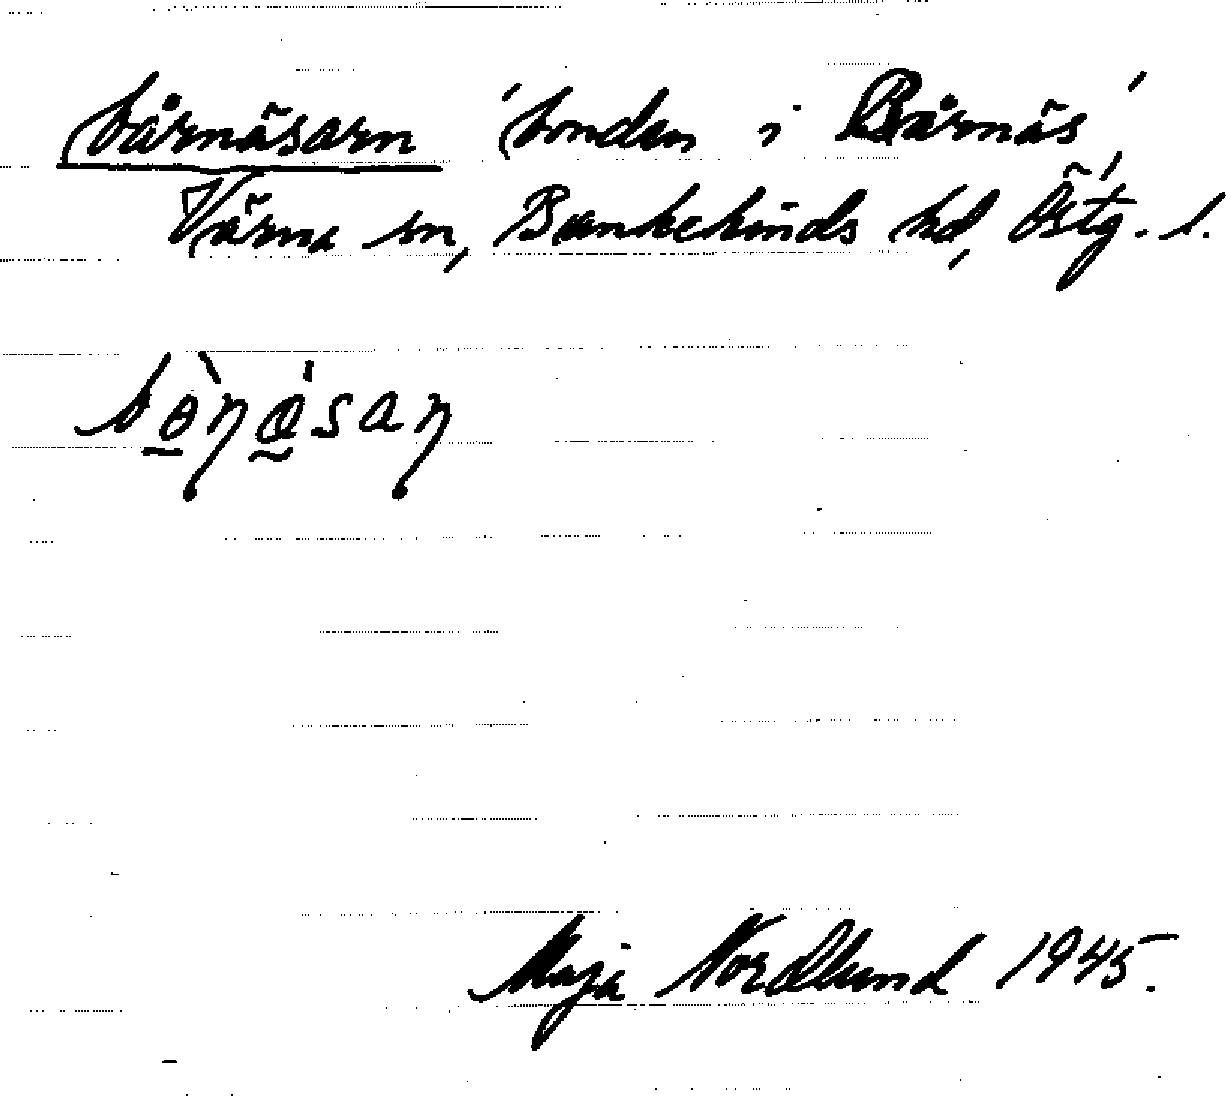 bårnäsarn 'bonden i Bårnäs'
Värna sn, Bankekinds hd, Östg. l.
Maja Nordlund 1945.